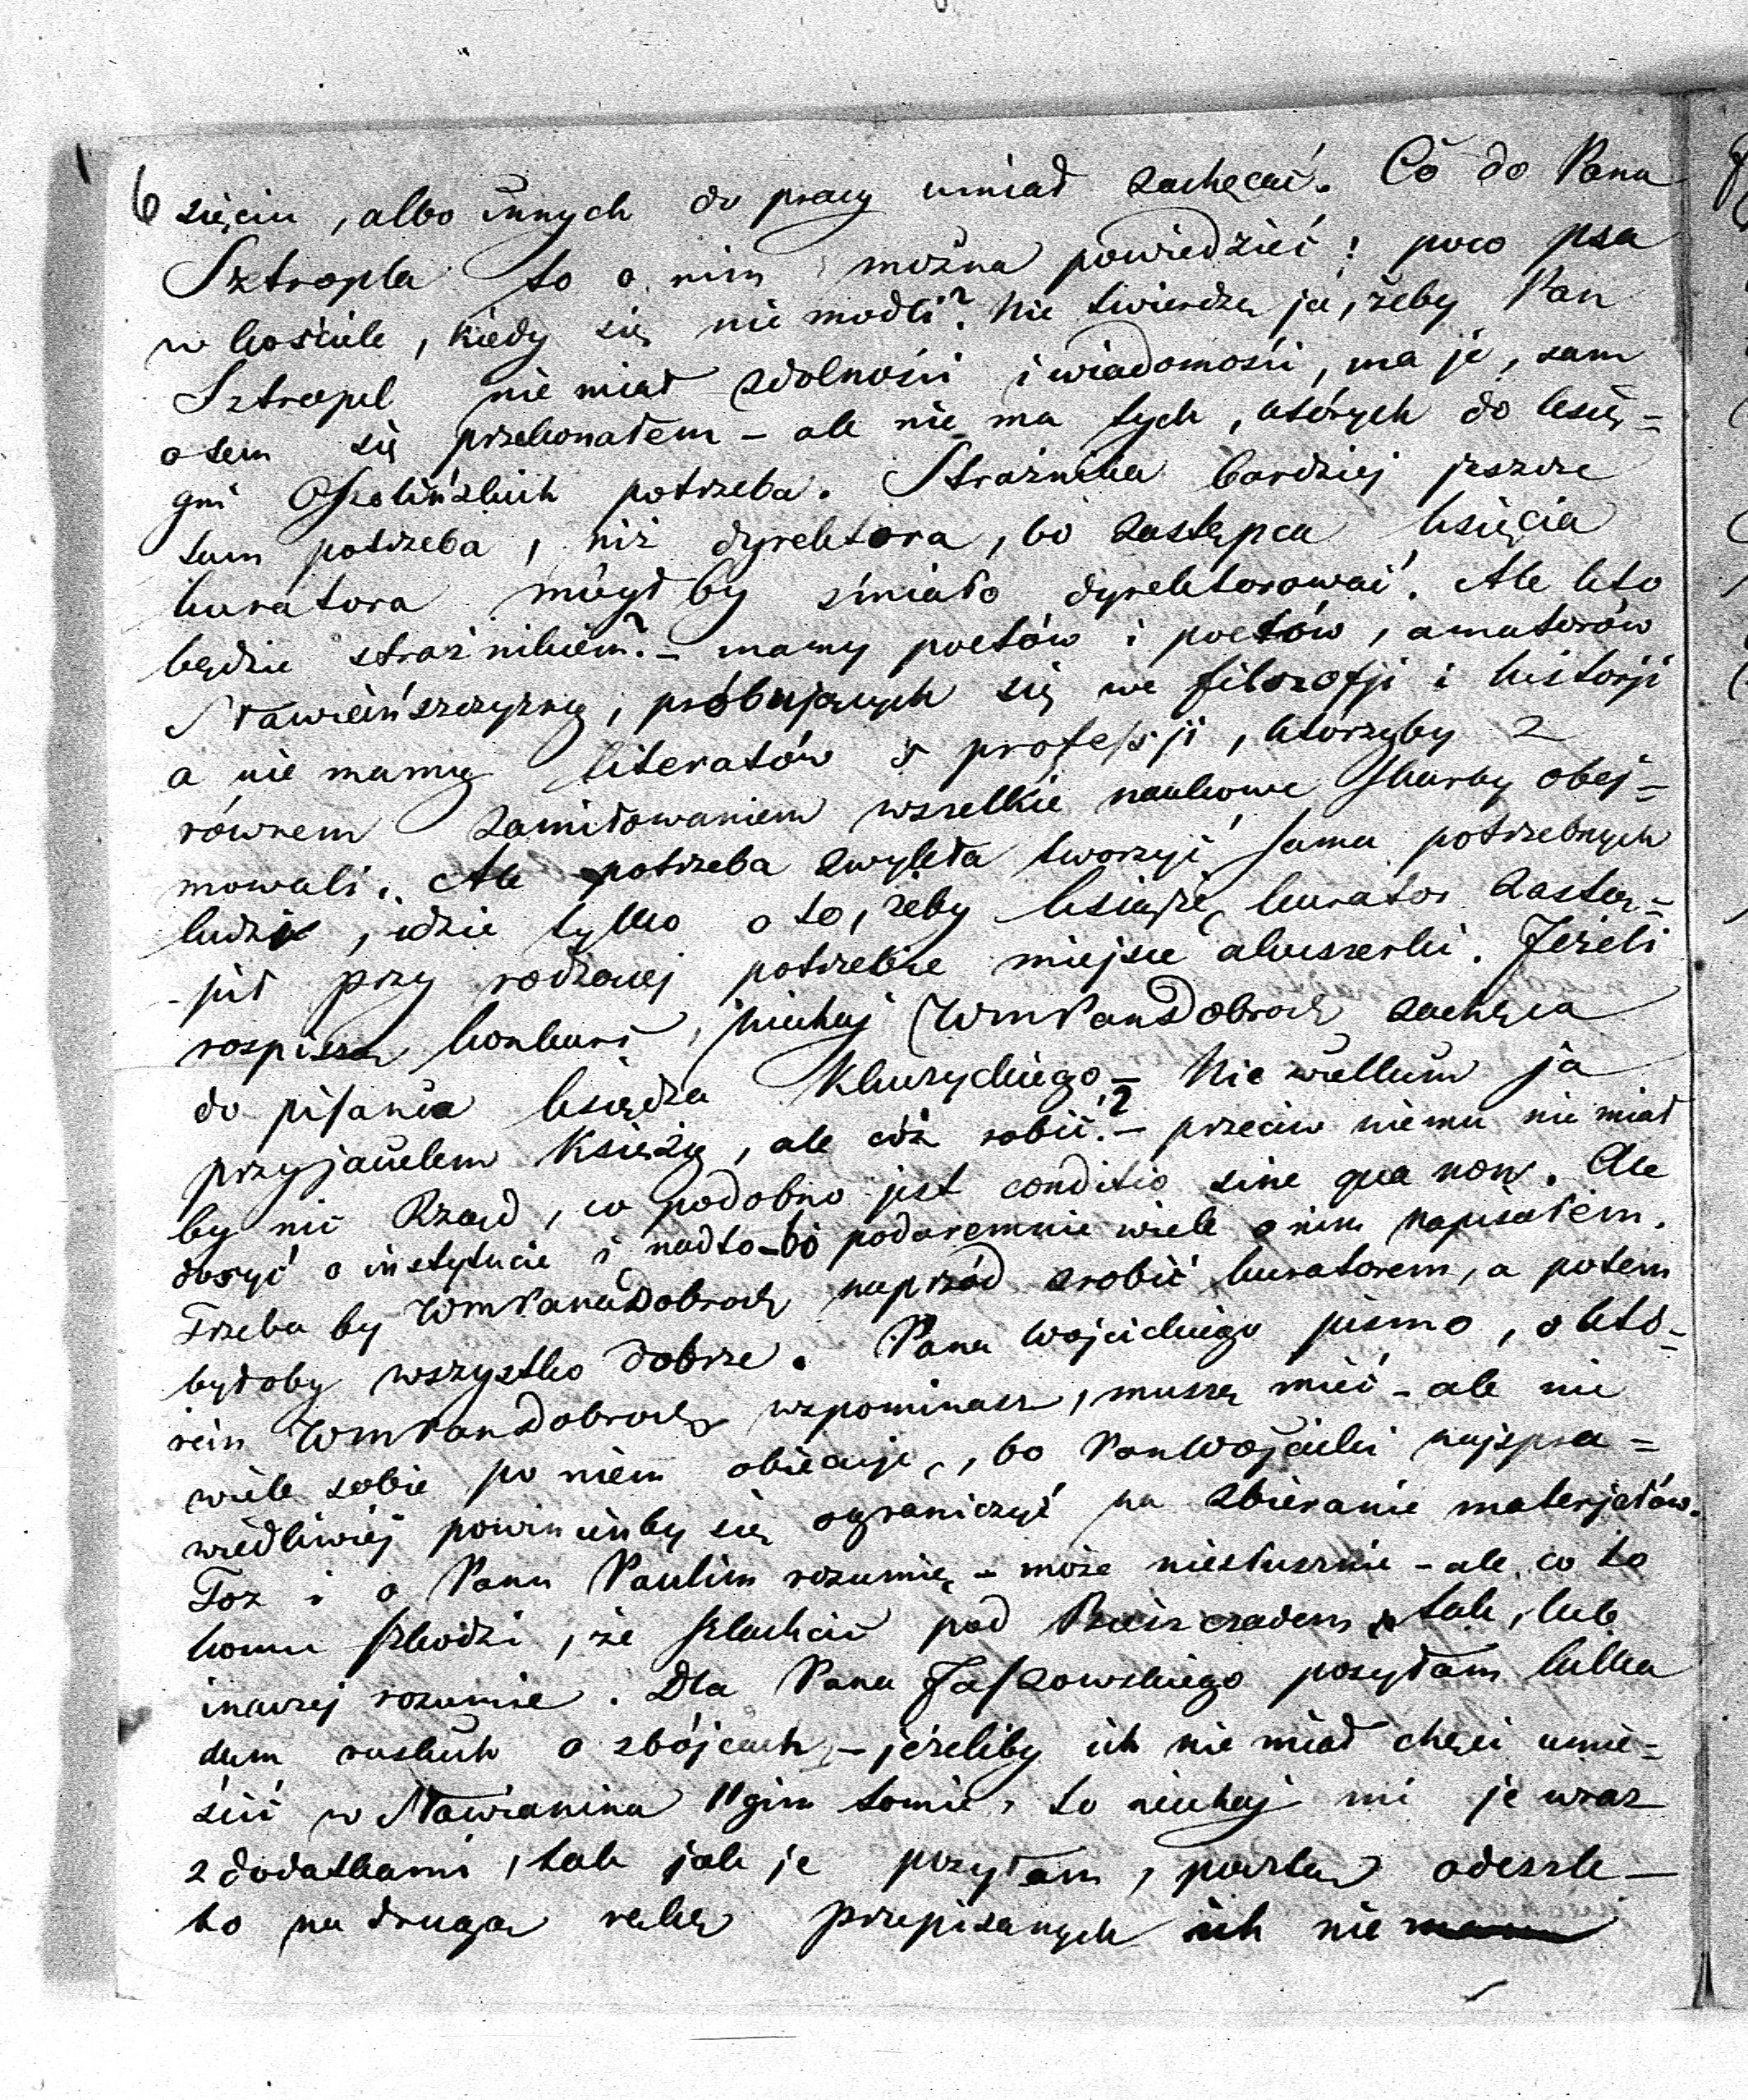 6 sięciu, albo innych do pracy umiał zachęcać. Co do Pana
Sztropla to o nim można powiedzieć: poco psa
w kościele, kiedy się nie modli? Nie twierdzę ja, żeby Pan
Sztropel nie miał zdolności i wiadomości, ma je, sam
o tem się przekonałem – ale nie ma tych, których do księ=
gni Ossolińskich potrzeba. Strażnika bardziej jeszcze
tam potrzeba, niż dyrektora, bo zastępca księcia
kuratora mógłby śmiało dyrektorować. Ale kto
będzie strażnikiem? – mamy poetów i poetów, amatorów
Sławiańszczyzny, próbujących się we filozofji i historji
a nie mamy literatów z professji, którzyby z
równem zamiłowaniem wszelkie naukowe skarby obej=
mowali. Ale potrzeba zwykła tworzyć sama potrzebnych
ludzi, idzie tylko o to, żeby książę kurator zastą=
pił przy rodzącej potrzebie miejsce akuszerki. Jeżeli
rozpiszą konkurs, niechaj WmPanDobrodz zachęca
do pisania księdza – Nie wielkim ja
przyjacielem Księży, ale cóż robić? – przeciw niemu nie miał
by nic Rząd, co podobno jest conditio sine qua non. Ale
dosyć o instytucie i nadto – bo podaremnie wiele o nim napisałem.
Trzeba by WmPanaDobrodz naprzód zrobić kuratorem, a potem
byłoby wszystko dobrze. Pana Wojcickiego pismo, o któ=
rem WmPanDobrodz wspominasz, muszę mieć – ale nie
wiele sobie po niem obiecuję, bo Pan Wojcicki najspra=
wiedliwiej powinienby się ograniczyć na zbieranie materjałów.
Toż i o Panu Paulim rozumię – może niesłusznie – ale co to
komu szkodzi, że szlachcic pod Bieszczadem tak, lub
inaczej rozumie. Dla Pana Jaszowskiego posyłam kilka
dum ruskich o zbójcach, – jeżeliby ich nie miał chęci umie=
ścić w Sławianina IIgim tomie, to niechaj mi je wraz
z dodatkami, tak jak je posyłam, pocztą odeszle –
bo na drugą rękę przepisanych ich nie mam